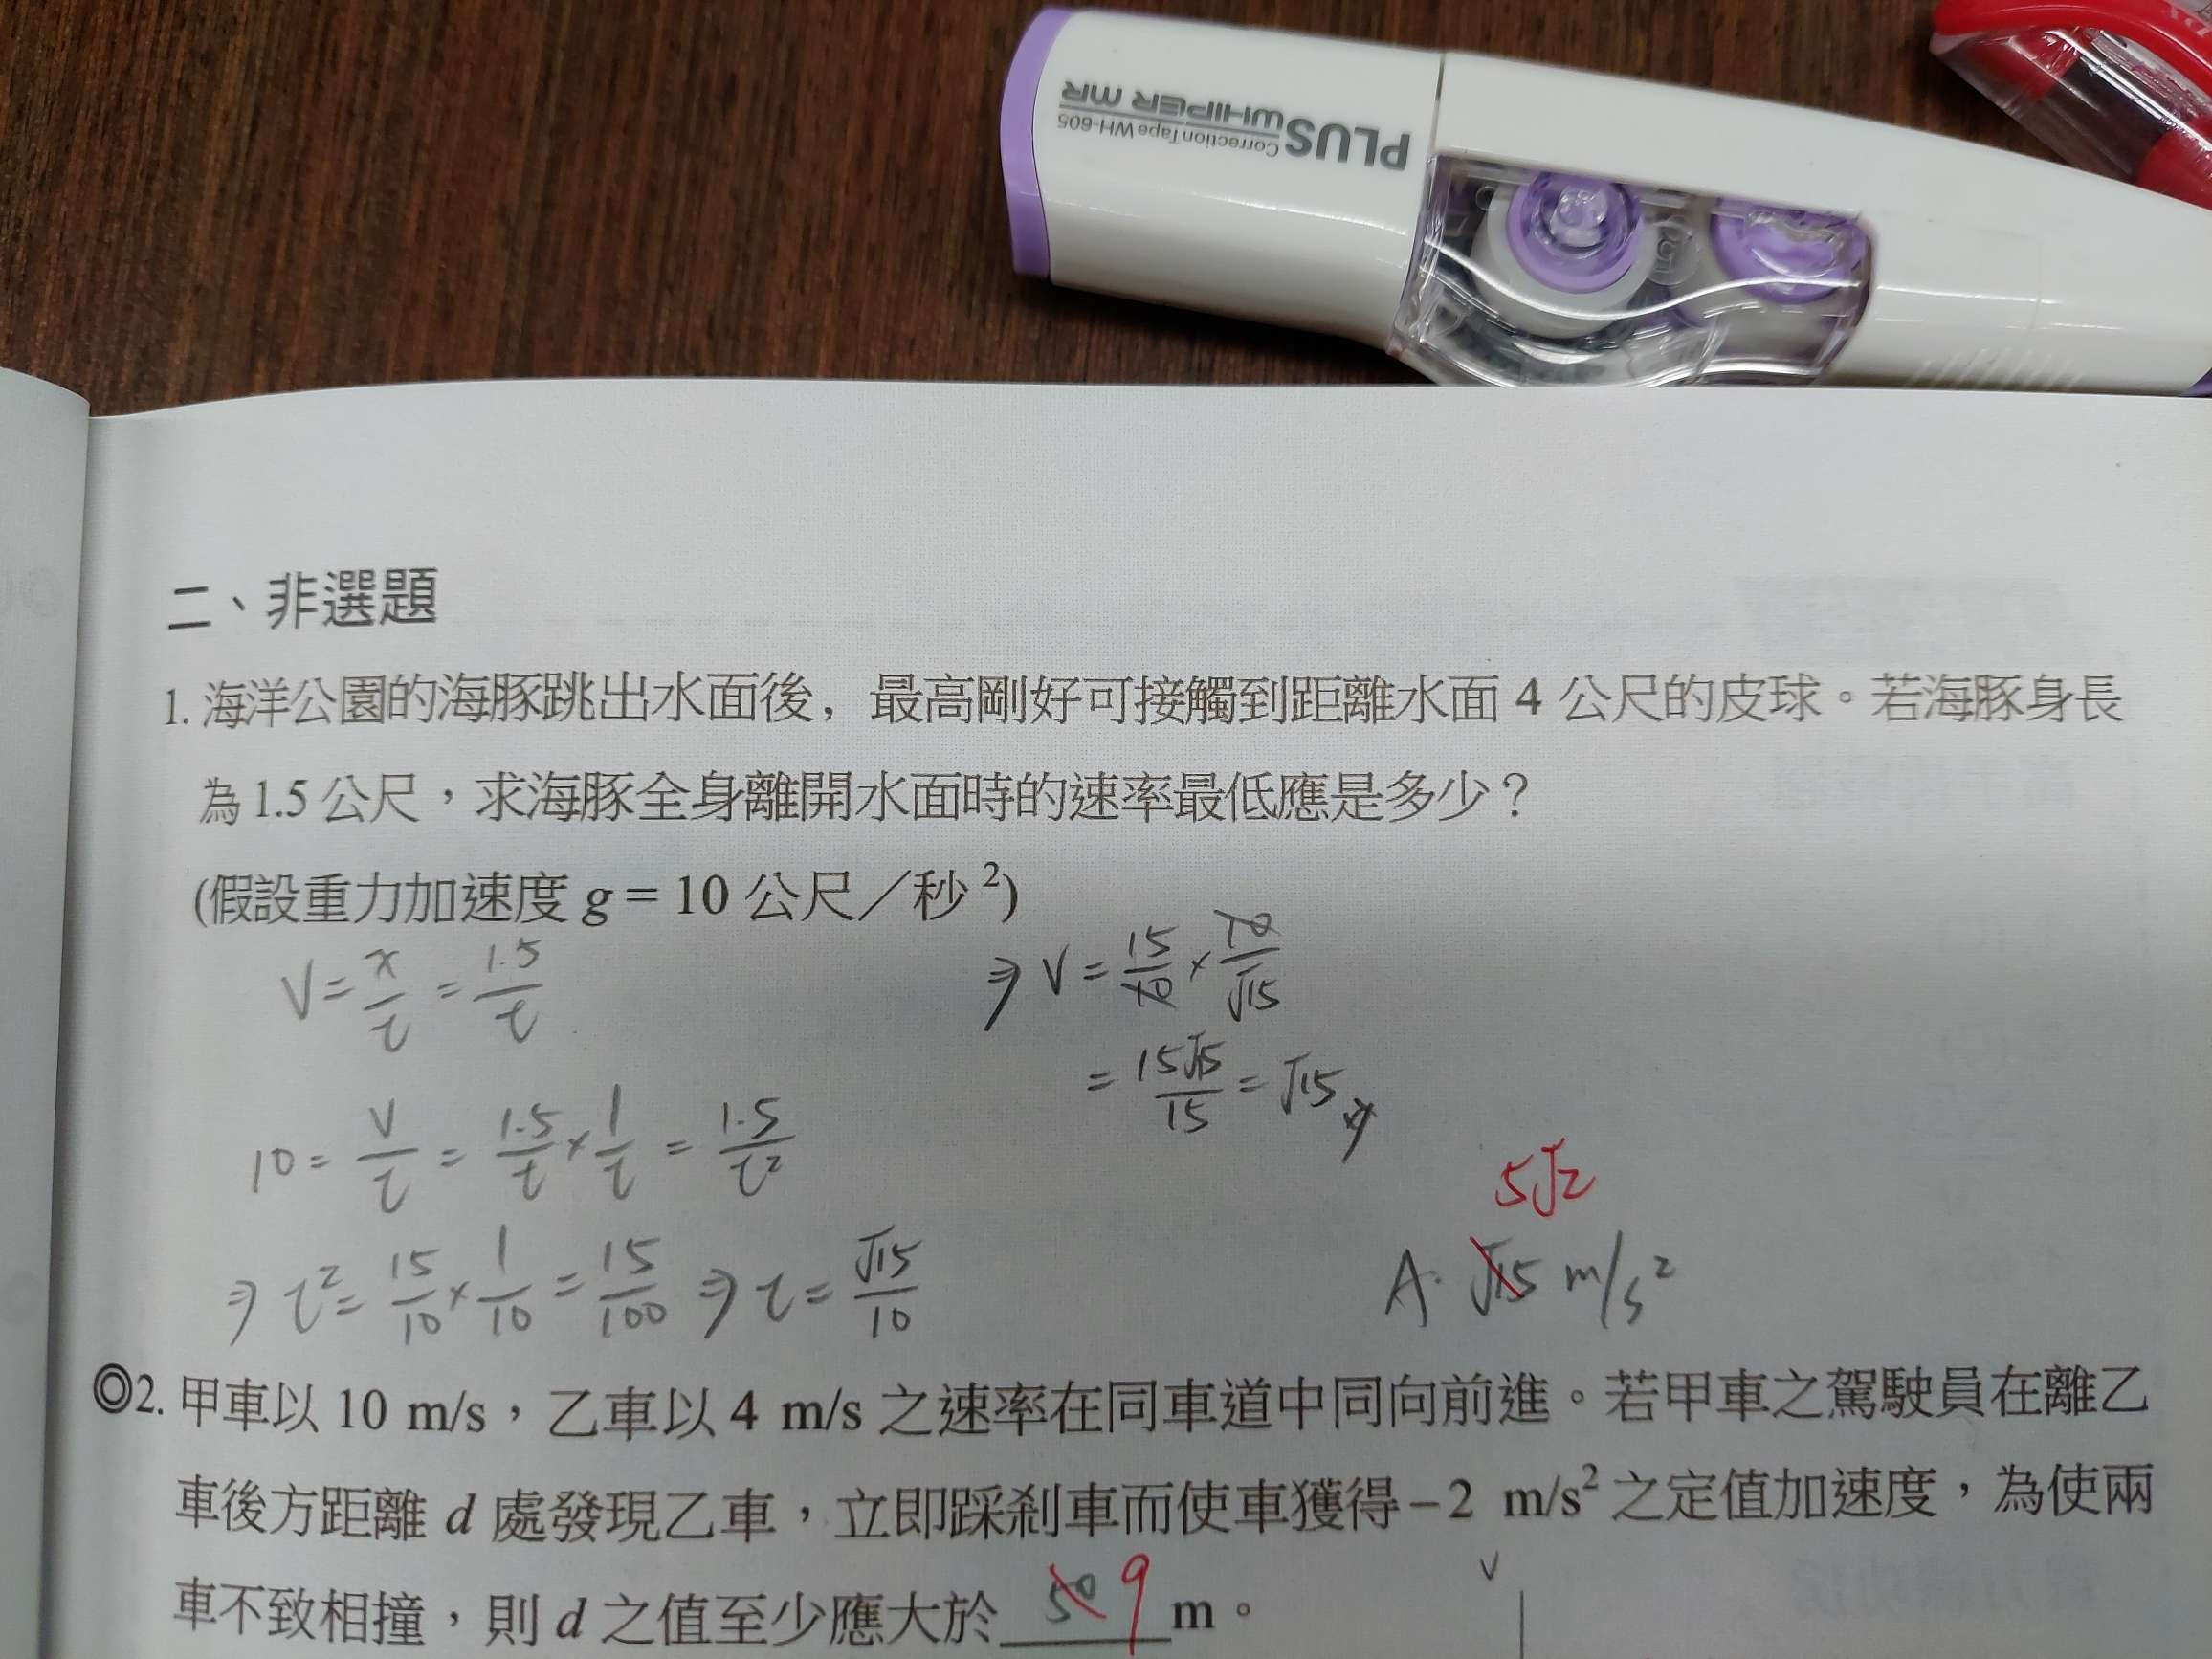 PLUS WHIPER MR
Correction Tape WH-605
二、非選題
1. 海洋公園的海豚跳出水面後，最高剛好可接觸到距離水面 4 公尺的皮球。若海豚身長
為 1.5 公尺，求海豚全身離開水面時的速率最低應是多少？
(假設重力加速度 g = 10 公尺／秒²)
V = x/t = 1.5/t
10 = V/t = 1.5/t × 1/t = 1.5/t²
⇒ t² = 15/10 × 1/10 = 15/100 ⇒ t = √15/10
⇒ V = 15/10 × 10/√15
= 15√15/15 = √15
5√2
A. √15 m/s²
◎2. 甲車以 10 m/s，乙車以 4 m/s 之速率在同車道中同向前進。若甲車之駕駛員在離乙
車後方距離 d 處發現乙車，立即踩剎車而使車獲得 –2 m/s² 之定值加速度，為使兩
車不致相撞，則 d 之值至少應大於 50 9 m。
V